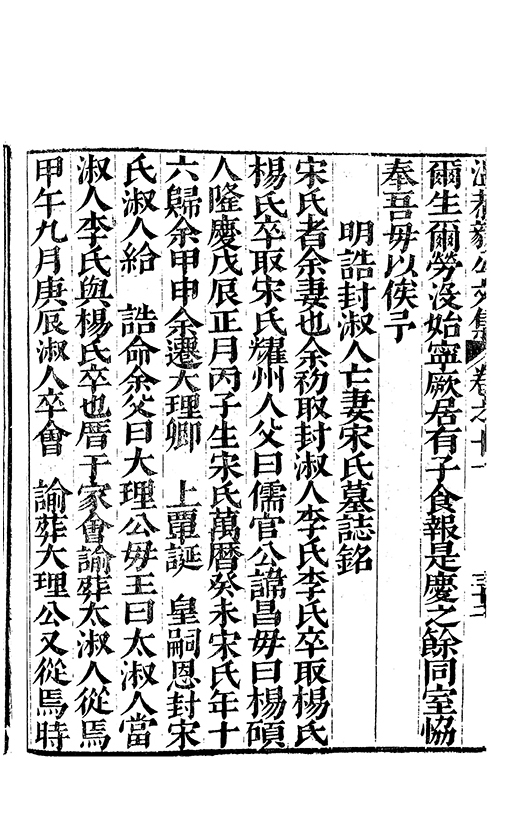 溫恭毅公文集 卷之十一
爾生爾勞没始寧厥居有子食報是慶之餘同室恊
奉吾毋以俟予
明誥封淑人亡妻宋氏墓誌銘
宋氏者余妻也余初取封淑人李氏李氏卒取楊氏
楊氏卒取宋氏耀州人父曰儒官公諱昌毋曰楊碩
人隆慶戊辰正月丙子生宋氏萬曆癸未宋氏年十
六歸余甲申余遷大理卿 上覃誕 皇嗣恩封宋
氏淑人給 誥命余父曰大理公毋王曰太淑人當
淑人李氏與楊氏卒也厝于家會諭葬太淑人從焉
甲午九月庚辰淑人卒會 諭葬大理公又從焉時